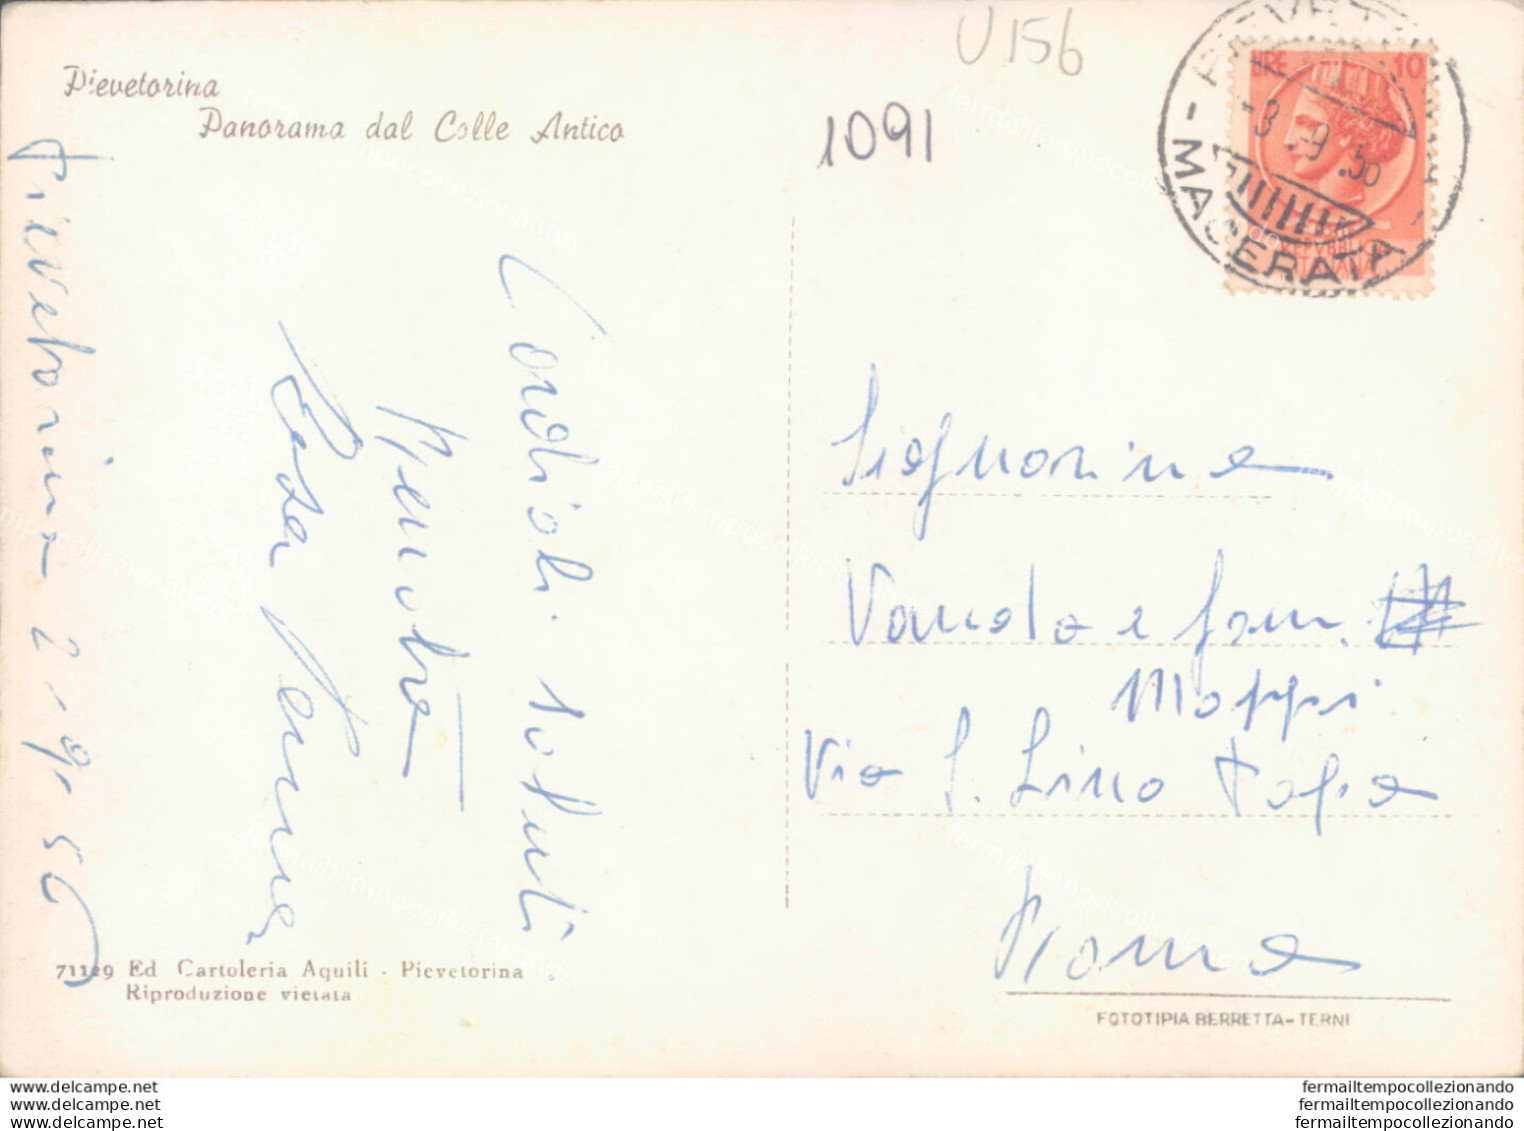 U 156
1091
Pievetorina
Panorama dal Colle Antico
LIRE 10
3.9.56
- MACERATA
REPVBBLICA
ITALIANA
Pievetorina 2-9-56
Cordiali saluti
Signorina
Vanda e fam.
Moppi
Via S. Lino Papa
Roma
71129 Ed Cartoleria Aquili - Pievetorina
Riproduzione vietata
FOTOTIPIA BERRETTA-TERNI
www.delcampe.net
www.delcampe.net
www.delcampe.net
fermailtempocollezionando
fermailtempocollezionando
fermailtempocollezionando